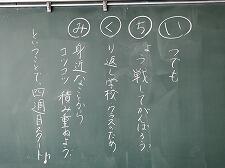 い つでも
ち ょう戦してがんばろう
く り返し学校クラスのため
み 身近なことから
コツコツ積み重ねよう
ということで四週目スタート